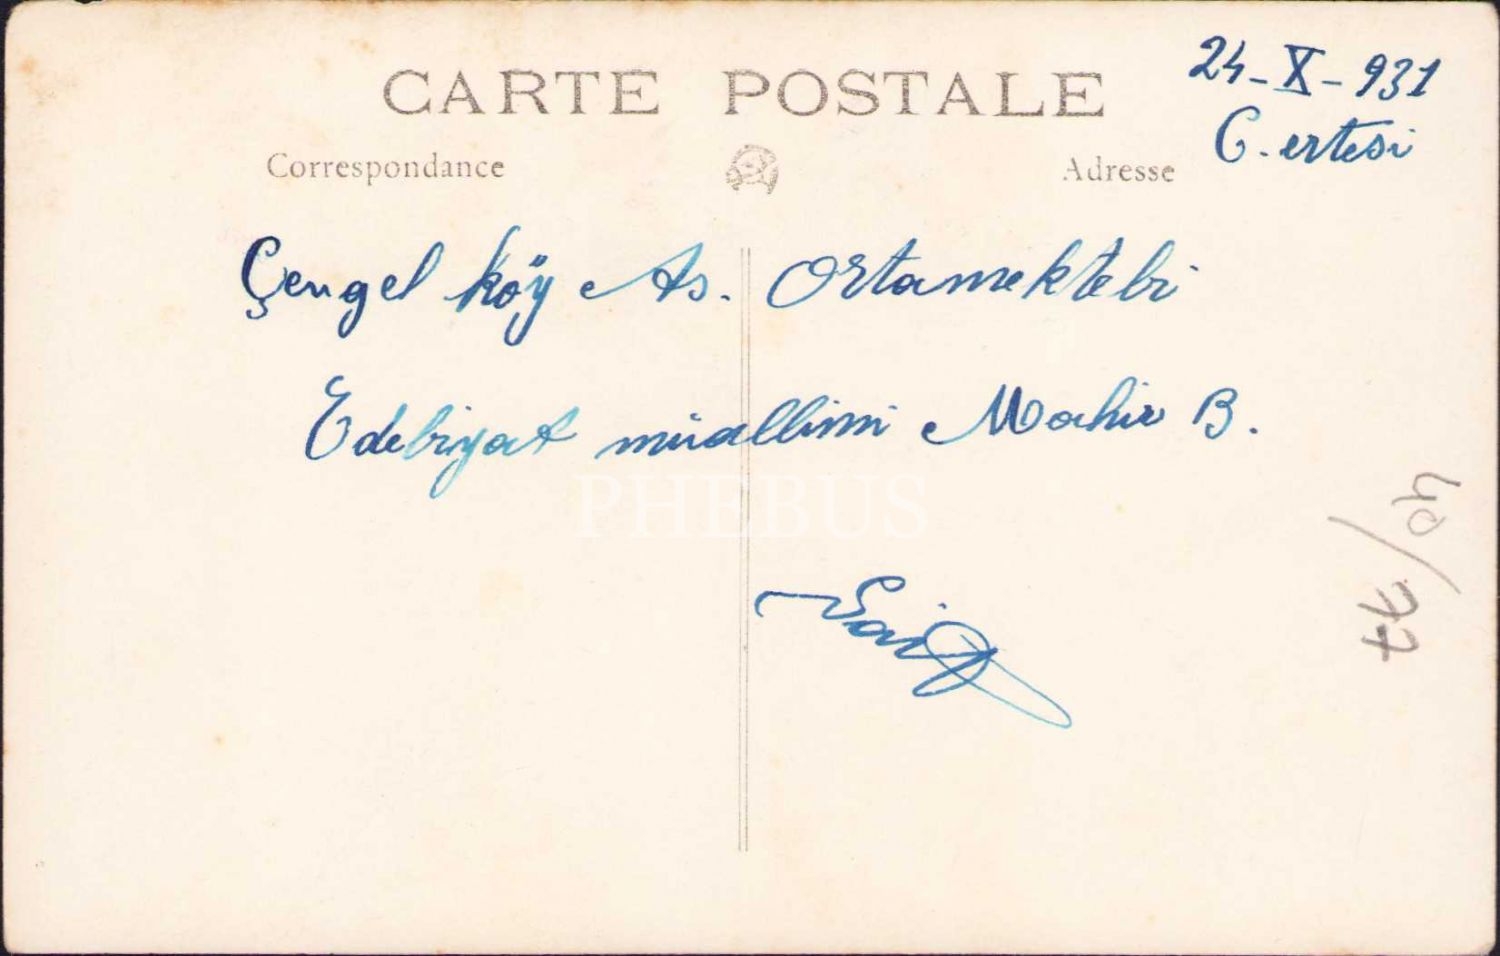 CARTE POSTALE
24-X-931
C. ertesi
Correspondance
Adresse
Çengel köy As. Ortamektebi
Edebiyat müallimi Mahir B.
PHEBUS
Sait